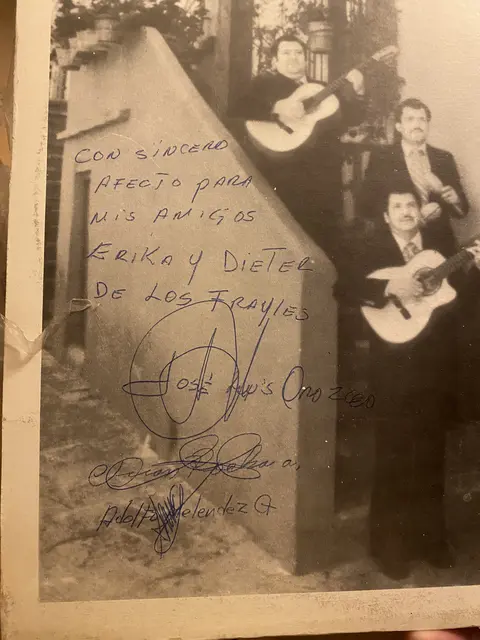 CON SINCERO
AFECTO PARA
MIS AMIGOS
ERIKA Y DIETER
DE LOS FRAYLES
JOSÉ LUIS OROZCO
Adolfo Melendez G